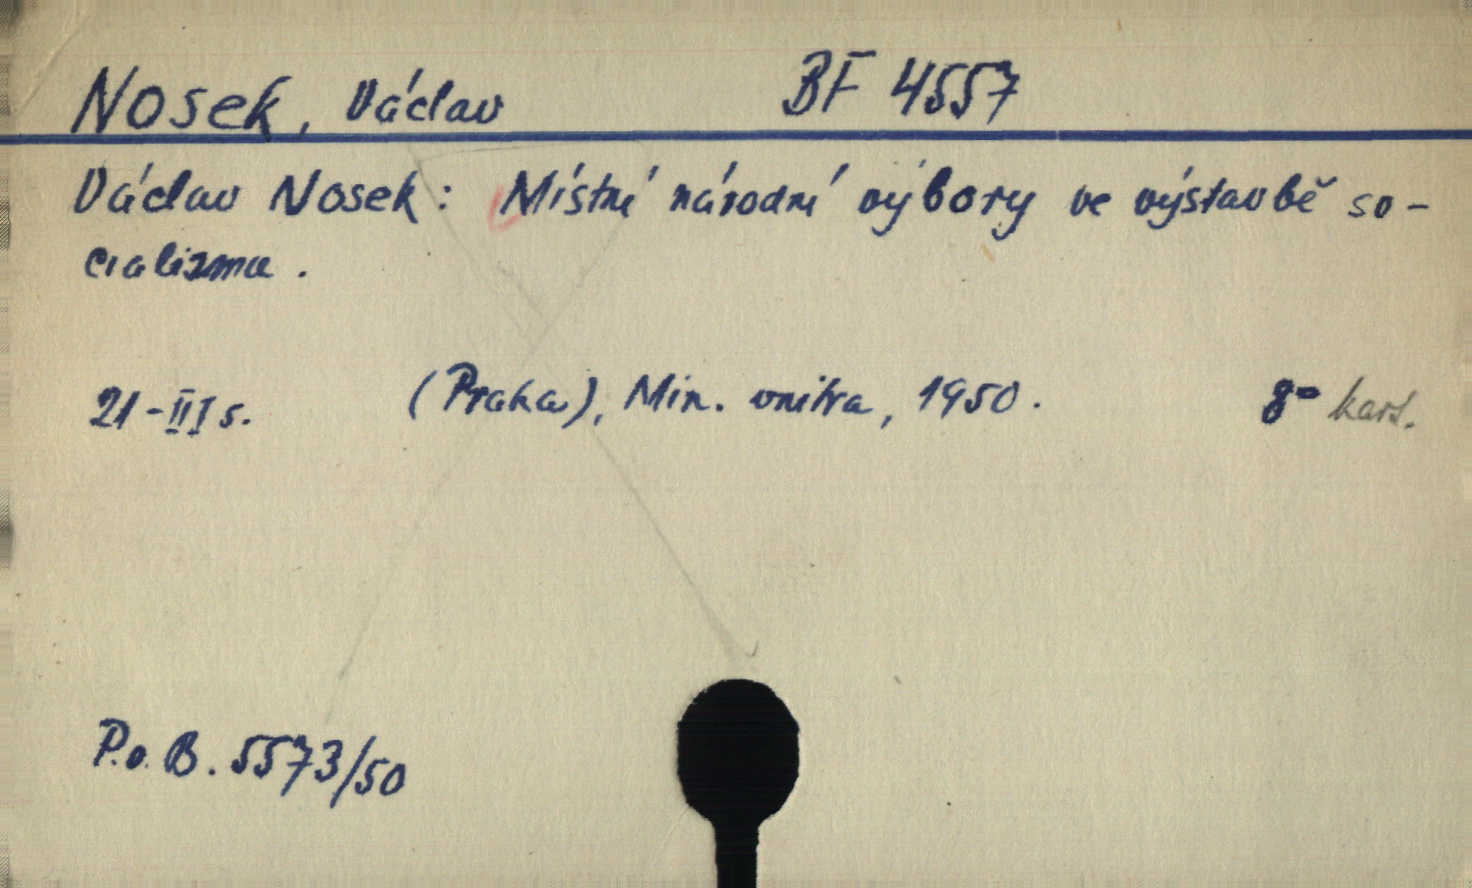 Nosek, Václav BF 4557
Václav Nosek: Místní národní výbory ve výstavbě so-
cializmu.
21-III s. (Praha), Min. vnitra, 1950. 8° kart.
P.o.B. 5573/50